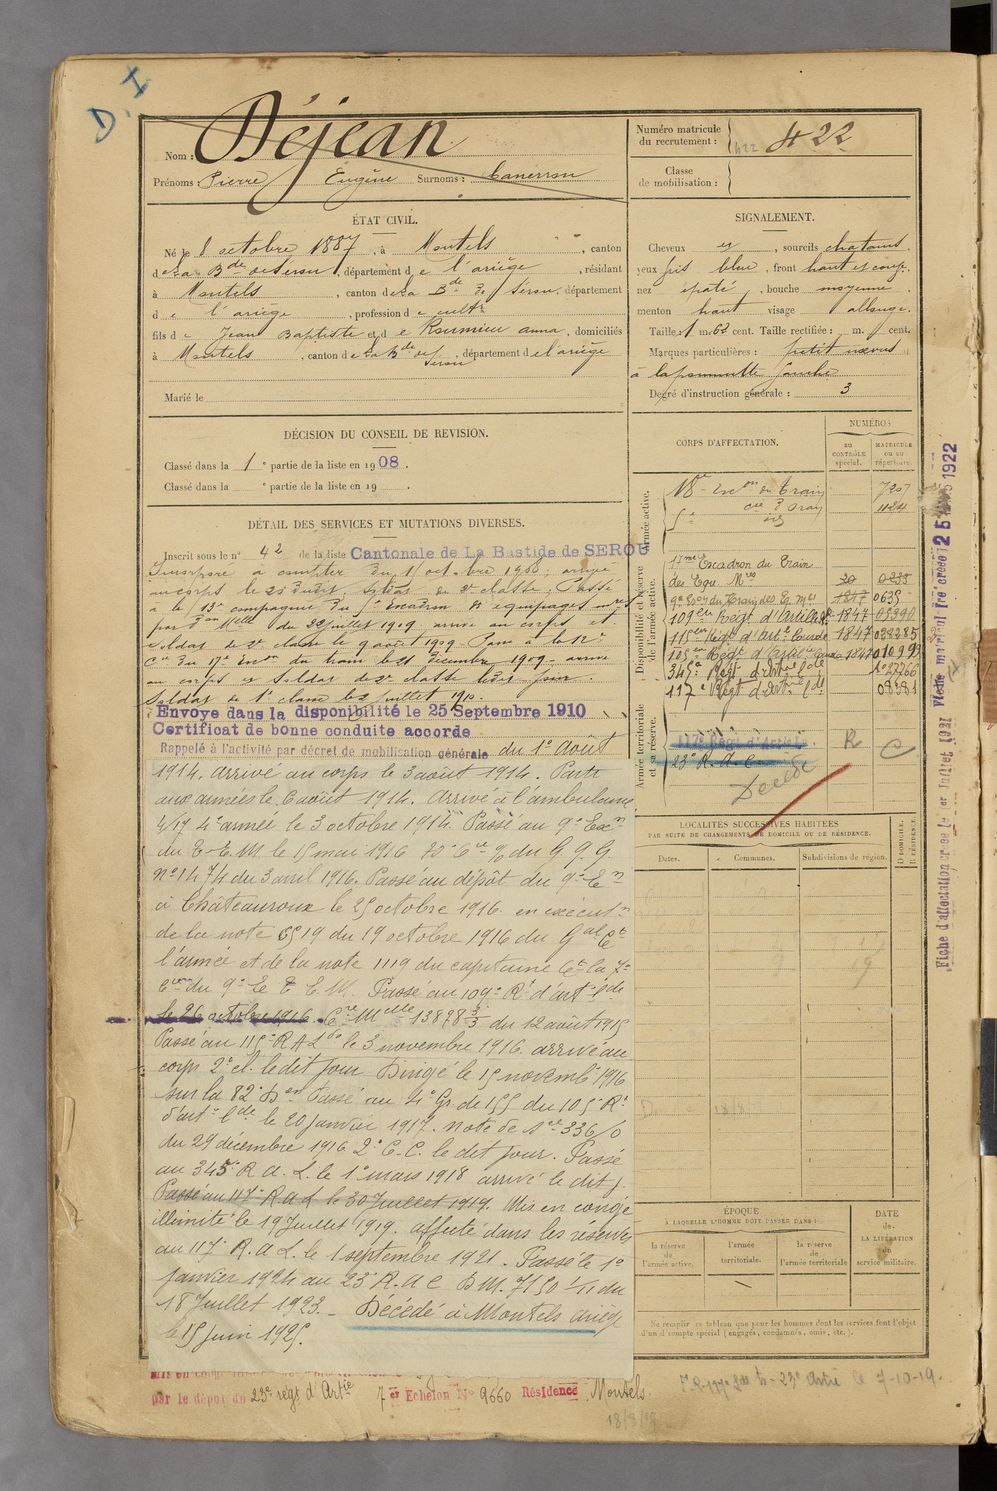 D. I
Nom : Déjean
Prénoms : Pierre Eugène Surnoms :
Numéro matricule
du recrutement : 422 422
Classe
de mobilisation :
ÉTAT CIVIL.
Né le 8 octobre 1887, à Montels, canton
de La Bde de Sérou, département de l'ariège, résidant
à Montels, canton de La Bde de Sérou, département
de l'ariège, profession de cultr
fils de Jean Baptiste et de Roumieu anna, domiciliés
à Montels, canton de La Bde de Sérou, département de l'ariège
Marié le
SIGNALEMENT.
Cheveux et, sourcils chatains,
yeux gris bleu, front haut et
nez epaté, bouche moyenne,
menton haut visage allongé.
Taille : 1 m. 62 cent. Taille rectifiée : m. cent.
Marques particulières : petit nævus
à la pommette gauche
Degré d'instruction générale : 3
DÉCISION DU CONSEIL DE REVISION.
Classé dans la 1e partie de la liste en 1908.
Classé dans la e partie de la liste en 19 .
DÉTAIL DES SERVICES ET MUTATIONS DIVERSES.
Inscrit sous le n° 42 de la liste Cantonale de La Bastide de SEROU
Incorporé à compter du 1 octobre 1908, arrivé
au corps le dit, soldat de 2e classe. Passé
à la 13e compagnie du Escadron d'équipages mres
par Don Melle du 22 juillet 1909 arrivé au corps et
soldat de 2e classe le 9 août 1909. Passé à la 12e
Cie du 17e Escon du train le 21 décembre 1909 arrivé
au corps et soldat de 2e classe dit jour.
Soldat de 1e classe le 2 juillet 1910.
Envoyé dans la disponibilité le 25 Septembre 1910
Certificat de bonne conduite accordé
Rappelé à l'activité par décret de mobilisation générale du 1e Août
1914. arrivé au corps le 3 août 1914. Parti
aux armées le 6 août 1914. Arrivé à l'ambulance
4/17 4e armée le 3 octobre 1914. Passé au 9e Escn
du T. E. M le 15 mai 1916 du G. Q. G
n° 1474 du 3 avril 1916. Passé au dépôt du 9e En
à Châteauroux le 25 octobre 1916. en exécutn
de la note 6519 du 19 octobre 1916 du Gal Ct
l'armée et de la note 1119 du capitaine Ct la 7e
Cie du 9e Ee T E. M. Passé au 109e Rt d'arte lde
le 26 octobre 1916. Cre Melle 13878 3/3 du 12 août 1915
Passé au 115e R A Lde le 3 novembre 1916 arrivé au
corps 2e cl. le dit jour Dirigé le 15 novembre 1916
sur la 82e Bie Passé au 4e Gr de 155 du 105e Rt
d'arte lde le 20 janvier 1917. note de 336/0
du 29 décembre 1916 2e C.C. le dit jour. Passé
au 345e R. A. L. le 1e mars 1918 arrivé le dit j.
Passé au 117e R A L le 30 Juillet 1919. Mis en congé
illimité le 19 Juillet 1919. affecté dans les réserves
au 117e R. A. L. le 1 septembre 1921. Passé le 1e
janvier 1924 au 23e R. A. C D M. 7150 1/11 du
18 Juillet 1923. - Décédé à Montels ariège
le 15 juin 1925.
par le dépôt du 23e régt d'Artie 7er Echelon N° 9660 Résidence Montels.
18/8/19
le 7-10-19.
CORPS D'AFFECTATION.
NUMÉROS
AU
CONTRÔLE
spécial.
MATRICULE
OU AU
répertoire.
Armée active.
18e Escon du Train 7207
1124
Disponibilité et réserve
de l'armée active.
17me Escadron du Train
des Equ. Mres 20 0233
9e Escon du Train des Eq. Mres 1847 0635
109em Régt d'Artillerie 1847 05390
115em Régt d'Artie Lourde 1847 028285
105em Régt d'Artie Lourde 1847 010993
345e Régt d'Artrie lde 27766
117e Régt d'Artrie lde 08381
Armée territoriale
et sa réserve.
117e Régt d'Artie L. R C
23e R. A. C
Décédé
LOCALITÉS SUCCESSIVES HABITÉES
PAR SUITE DE CHANGEMENTS DE DOMICILE OU DE RÉSIDENCE.
Dates. Communes. Subdivisions de région. D DOMICILE. R RÉSIDENCE.
ÉPOQUE
À LAQUELLE L'HOMME DOIT PASSER DANS :
la réserve
de
l'armée active.
l'armée
territoriale.
la réserve
de
l'armée territoriale
DATE
de
LA LIBÉRATION
du
service militaire.
Ne remplir ce tableau que pour les hommes dont les services font l'objet
d'un décompte spécial (engagés, condamnés, omis, etc.).